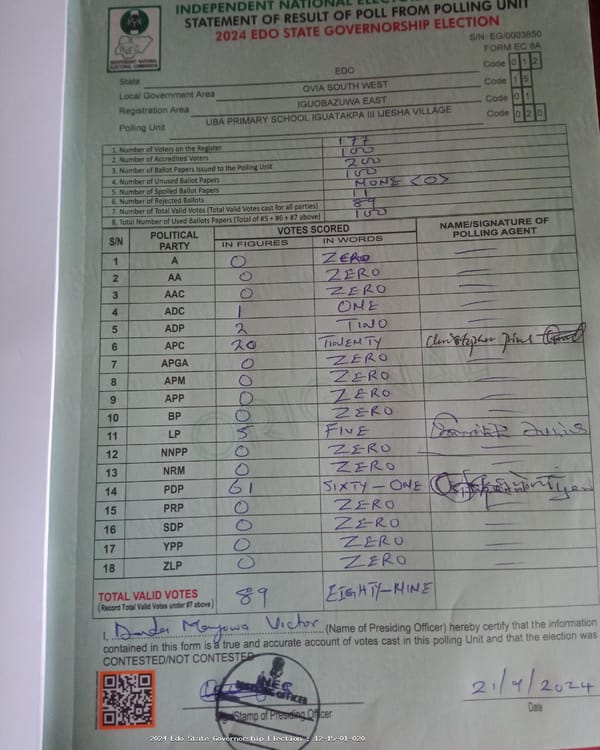 INDEPENDENT NATIONAL
STATEMENT OF RESULT OF POLL FROM POLLING UNIT
2024 EDO STATE GOVERNORSHIP ELECTION
INDEPENDENT NATIONAL
ELECTORAL COMMISSION
S/N: EG/0003850
FORM EC 8A
State EDO Code 0 1 2
Local Government Area OVIA SOUTH WEST Code 1 5
Registration Area IGUOBAZUWA EAST Code 0 1
Polling Unit UBA PRIMARY SCHOOL IGUATAKPA III IJESHA VILLAGE Code 0 2 0
1. Number of Voters on the Register 177
2. Number of Accredited Voters 100
3. Number of Ballot Papers Issued to the Polling Unit 200
4. Number of Unused Ballot Papers 100
5. Number of Spoiled Ballot Papers NONE <0>
6. Number of Rejected Ballots 11
7. Number of Total Valid Votes (Total Valid Votes cast for all parties) 89
8. Total Number of Used Ballots Papers (Total of #5 + #6 + #7 above) 100
S/N POLITICAL PARTY VOTES SCORED NAME/SIGNATURE OF POLLING AGENT
IN FIGURES IN WORDS
1 A 0 ZERO
2 AA 0 ZERO
3 AAC 0 ZERO
4 ADC 1 ONE
5 ADP 2 TWO
6 APC 20 TWENTY Christopher pius
7 APGA 0 ZERO
8 APM 0 ZERO
9 APP 0 ZERO
10 BP 0 ZERO
11 LP 5 FIVE Julius
12 NNPP 0 ZERO
13 NRM 0 ZERO
14 PDP 61 SIXTY-ONE
15 PRP 0 ZERO
16 SDP 0 ZERO
17 YPP 0 ZERO
18 ZLP 0 ZERO
TOTAL VALID VOTES 89 EIGHTY-NINE
(Record Total Valid Votes under #7 above)
I, Victor (Name of Presiding Officer) hereby certify that the information
contained in this form is a true and accurate account of votes cast in this polling Unit and that the election was
CONTESTED/NOT CONTESTED
Stamp of Presiding Officer
21/9/2024
Date
ORIGINAL
2024 Edo State Governorship Election : 12-15-01-020